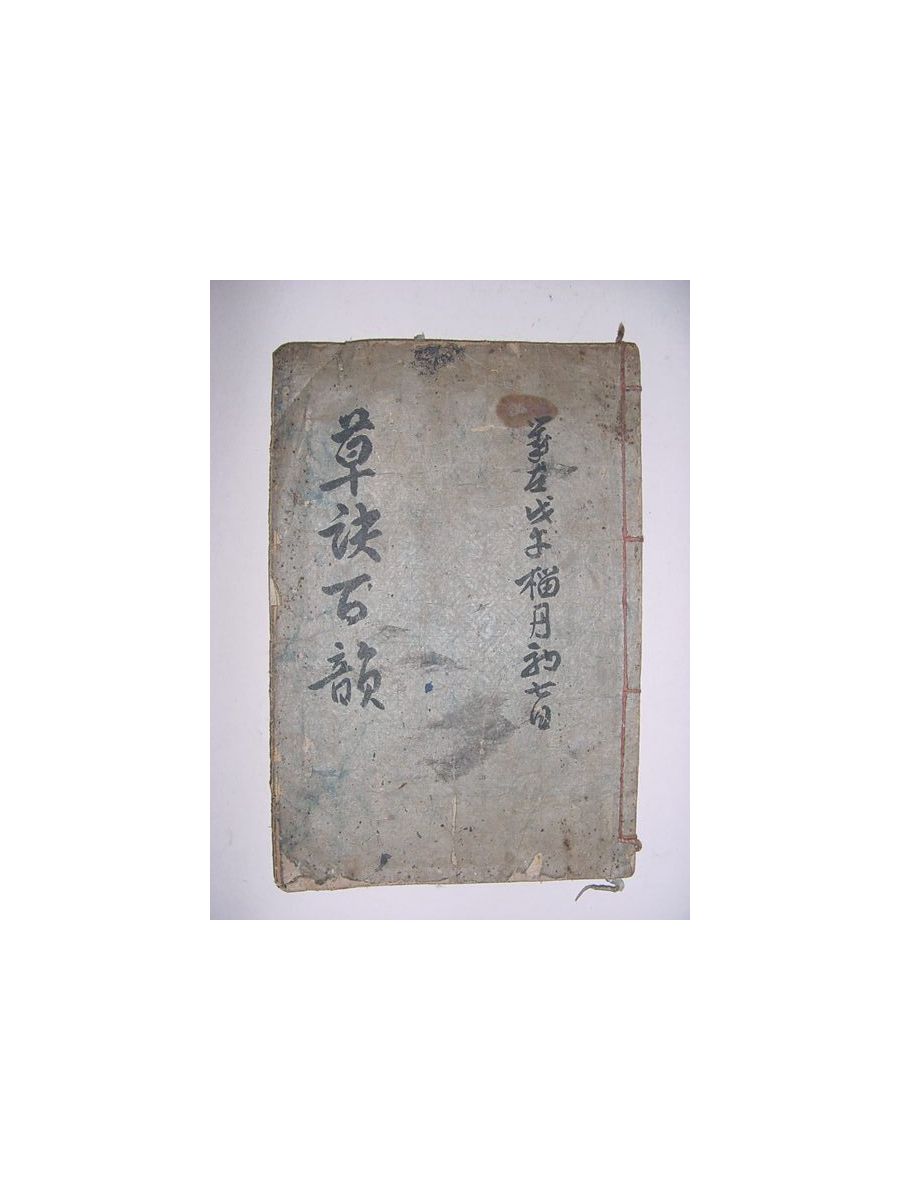 在戊午榴月初七日
草訣百韻